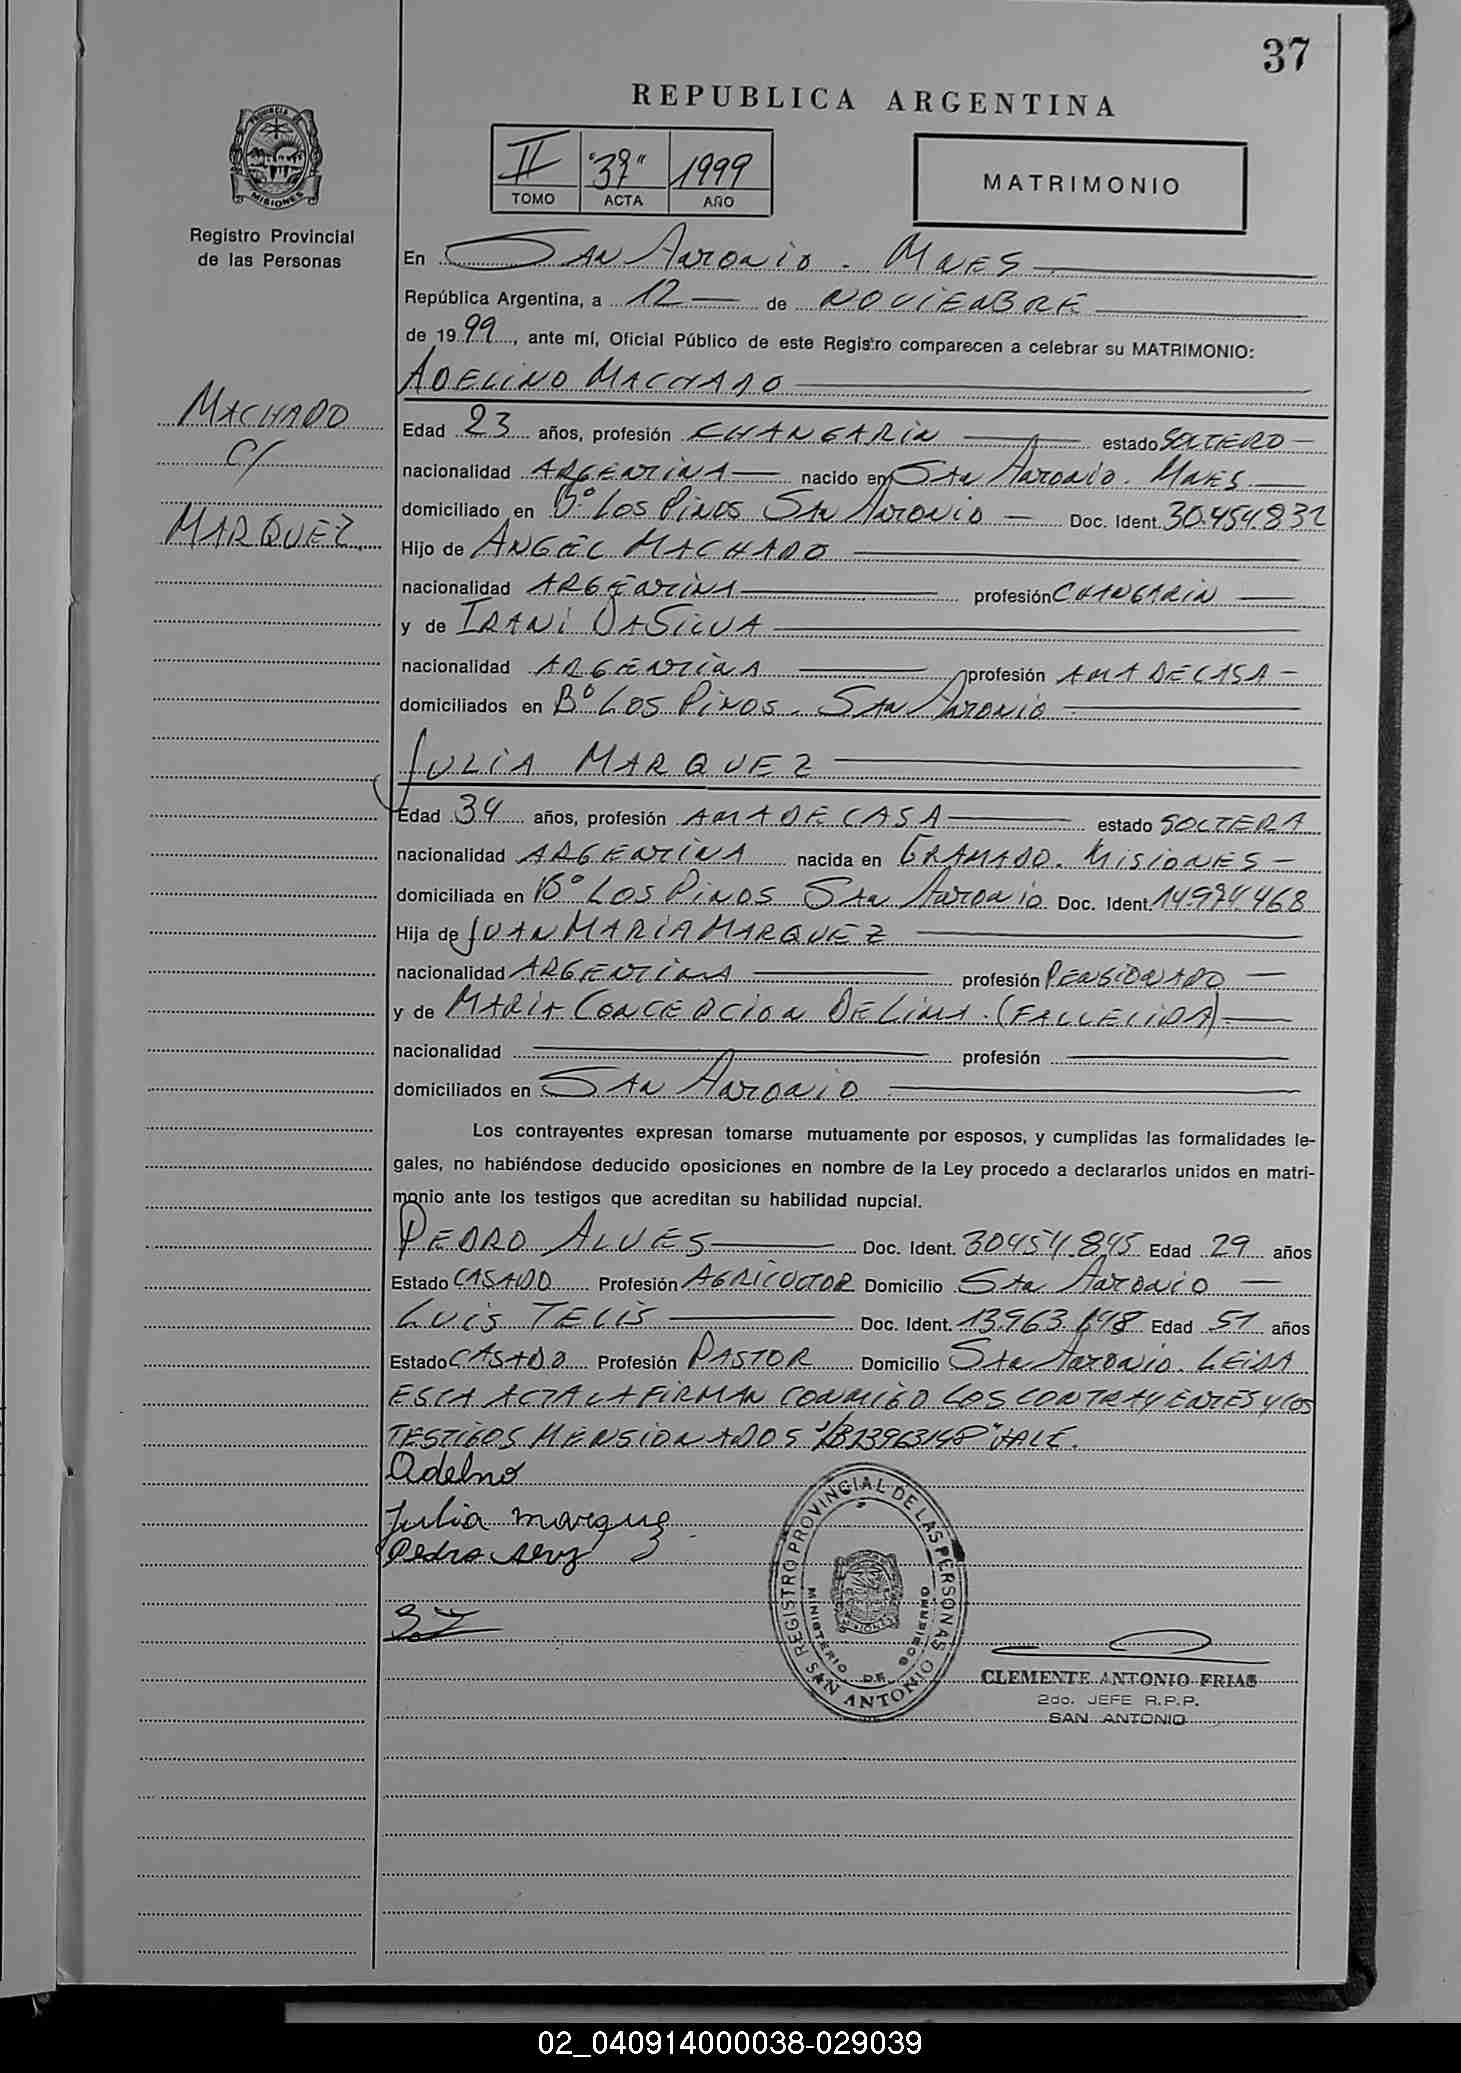 37
REPUBLICA ARGENTINA
PROVINCIA DE MISIONES
Registro Provincial
de las Personas
II "37" 1999
TOMO ACTA AÑO
MATRIMONIO
MACHADO
C/
MARQUEZ
En SAN ANTONIO - MNES
República Argentina, a 12 de NOVIENBRE
de 1999, ante mí, Oficial Público de este Registro comparecen a celebrar su MATRIMONIO:
ADELINO MACHADO
Edad 23 años, profesión CHANGARIN estado SOLTERO
nacionalidad ARGENTINA nacido en SAN ANTONIO. MNES.
domiciliado en B° LOS PINOS SAN ANTONIO Doc. Ident. 30.454.832
Hijo de ANGEL MACHADO
nacionalidad ARGENTINA profesión CHANGARIN
y de IRANI DASILVA
nacionalidad ARGENTINA profesión AMA DE CASA
domiciliados en B° LOS PINOS. SAN ANTONIO
JULIA MARQUEZ
Edad 34 años, profesión AMA DE CASA estado SOLTERA
nacionalidad ARGENTINA nacida en GRAMADO. MISIONES
domiciliada en B° LOS PINOS SAN ANTONIO Doc. Ident.
Hija de JUAN MARIA MARQUEZ
nacionalidad ARGENTINA profesión PENSIONADO
y de MARIA CONCEPCION DE LIMA. (FALLECIDA)
nacionalidad profesión
domiciliados en SAN ANTONIO
Los contrayentes expresan tomarse mutuamente por esposos, y cumplidas las formalidades le-
gales, no habiéndose deducido oposiciones en nombre de la Ley procedo a declararlos unidos en matri-
monio ante los testigos que acreditan su habilidad nupcial.
PEDRO ALVES Doc. Ident. 30454.845 Edad 29 años
Estado CASADO Profesión AGRICULTOR Domicilio SAN ANTONIO
LUIS TELIS Doc. Ident. Edad 51 años
Estado CASADO Profesión PASTOR Domicilio SAN ANTONIO. LEIDA
ESTA ACTA LA FIRMAN CONMIGO LOS CONTRAYENTES Y LOS
TESTIGOS MENSIONADOS VALE.
Adelno
Julia marquez
Pedro
REGISTRO PROVINCIAL DE LAS PERSONAS
MINISTERIO DE GOBIERNO
SAN ANTONIO
CLEMENTE ANTONIO FRIAS
2do. JEFE R.P.P.
SAN ANTONIO
02_040914000038-029039